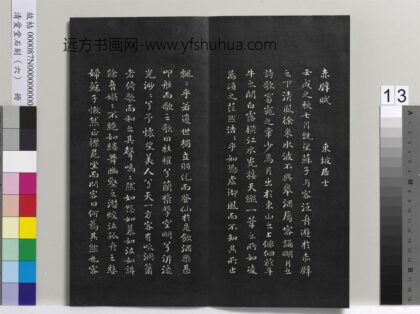 远方书画网-www.yfshuhua.com
赤壁賦
東坡居士
壬戌之秋七月既望蘇子与客泛舟遊於赤壁
之下清風徐来水波不興舉酒屬客誦明月之
詩歌窈窕之章少焉月出於東山之上徘徊於斗
牛之間白露橫江水光接天縱一葦之所如凌
萬頃之茫然浩浩乎如憑虚御風而不知其所止
飄飄乎若遺世獨立羽化而登仙於是飲酒樂甚
叩舷而歌之歌曰桂櫂兮蘭槳擊空明兮泝流
光渺渺兮予懷望美人兮天一方客有吹洞簫
者倚歌而和之其聲嗚嗚然如怨如慕如泣如訴
餘音嫋嫋不絶如縷舞幽壑之潛蛟泣孤舟之嫠
婦蘇子愀然正襟危坐而問客曰何為其然也客
13